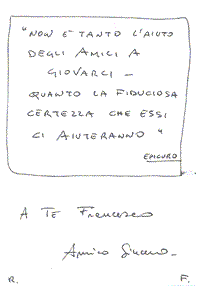 "NON E' TANTO L'AIUTO
DEGLI AMICI A
GIOVARCI -
QUANTO LA FIDUCIOSA
CERTEZZA CHE ESSI
CI AIUTERANNO"
EPICURO
A TE Francesco
Amico Sincero -
R. F.